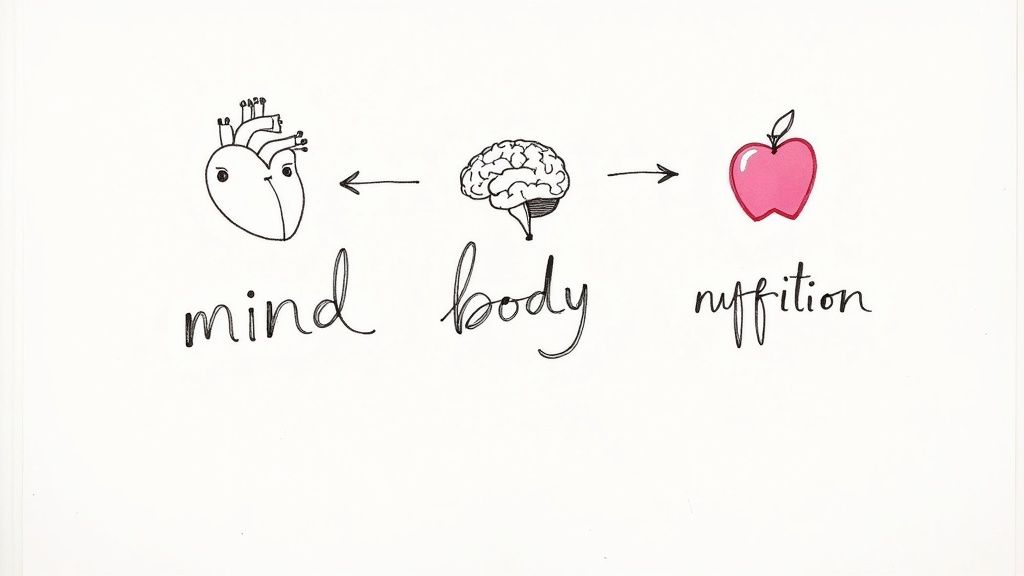 mind body nyffition